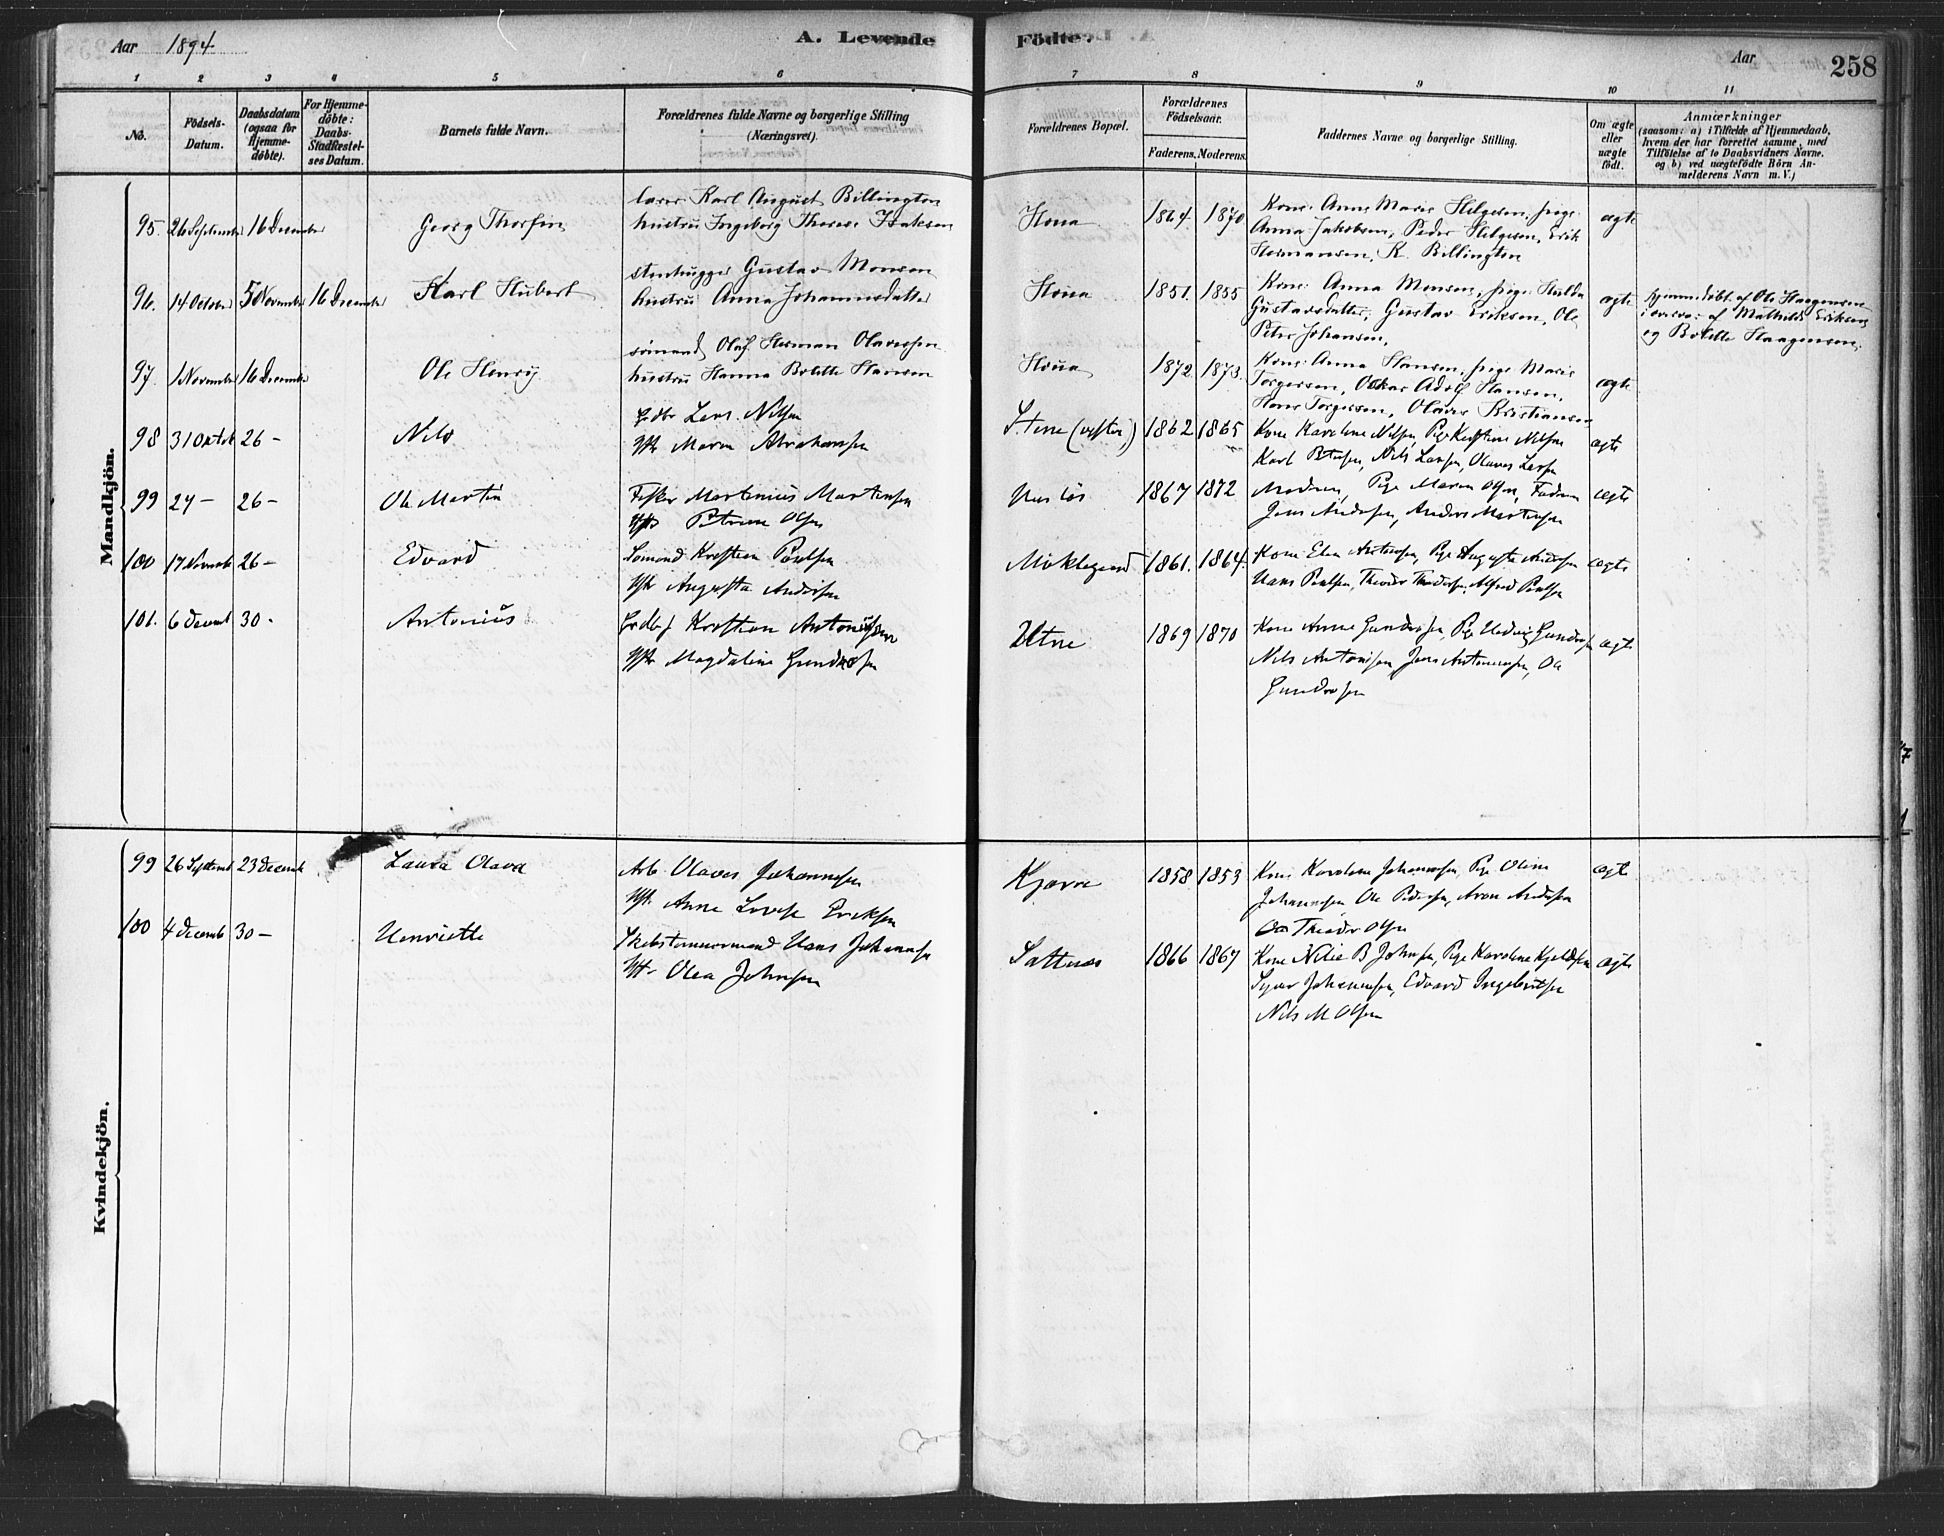 Aar 1894
A. Levende
Födte.
Aar
258
1 2 3 4 5 6 7 8 9 10 11
No.
Födsels-
Datum.
Daabsdatum
(ogsaa for
Hjemme-
døbte).
For Hjemme-
döbte:
Daabs-
Stadfæstel-
ses Datum.
Barnets fulde Navn.
Forældrenes fulde Navne og borgerlige Stilling
(Næringsvei).
Forældrenes Bopæl.
Forældrenes
Födselsaar.
Faderens. Moderens.
Faddernes Navne og borgerlige Stilling.
Om ægte
eller
uægte
födt.
Anmærkninger
(saasom: a) i Tilfælde af Hjemmedaab,
hvem der har forrettet samme, med
Tilföielse af to Daabsvidners Navne.
og b) ved uægtefödte Börn An-
melderens Navn m. V.)
Mandkjön.
95. 26 September 16 December
Georg Thorfin
lærer Karl August Billington
hustru Ingeborg Isaksen
1864. 1870
Kone: Anne Marie Helgesen, pige
Anna Jakobsen, Peder Helgesen, Erik
Hermansen, K. Billington
ægte
96. 14 October 5 November 16 December
Karl Hubert
stenhugger Gustav Monsen
hustru Anna Johannesdatter
1851. 1855
Kone: Anna Monsen, pige: Hulda
Gustavsdatter, Gustav Eriksen, Ole
Peter Johansen,
ægte
hjemmedøbt af Ole Haagensen
af Mathilde Eriksen
og Bolette Haagensen.
97. 1 November 16 December
Ole Henry
sømand Olaf Herman Olavessen
hustru Hanna Bolette Hansen
1872. 1873.
Kone: Anna Hansen, pige Marie
Torgersen, Oskar Adolf Hansen,
Hans Torgersen, Olaves Kristiansen
ægte
98 31 Oktob 26 –
Nils
Lars Nilsen
Hst Maren Abrahamsen
Stene (vestre)
1862 1865
Kone Karoline Nilsen, Pige Kristine Nilsen
Karl Nils Larsen, Olaves Larsen
ægte
99 24 – 26 –
Ole Martin
Fisker Martinius Martinsen
Hst Petrine Olsen
1867 1872
Modren, Pige Maren Olsen, Fadren
Jens Andersen, Anders Martinsen
ægte
100 17 Novemb 26 –
Edvard
Sømand Kristian Paulsen
Hst Augusta Andersen
Møklegaard
1861. 1864.
Kone Elen Antonsen, Pige Augusta Andersen
Hans Paulsen, Theodor Alfred Paulsen
ægte
101. 6 Decemb 30 –
Antonius
Kristian Antoniussen
Hst Magdalene Gundersen
Utne
1869 1870
Kone Anne Gundersen, Pige Hedvig Gundersen
Nils Antonisen, Jens Antonisen, Ole
Gundersen
ægte
Kvindekjön.
99 26 Septemb 23 Decemb
Laura Olava
Arb. Olaves Johannesen
Hst. Anne Lovise Eriksen
Kjærre
1858 1853
Kone Karoline Johannesen, Pige Oline
Johannesen Ole Pedersen, Aron Andersen
Theodor Olsen
ægt
100 4 Decemb 30 –
Henriette
Skibstømmermand Hans Johannesen
Hst. Olea Johnsen
1866 1867
Kone B Johnsen, Pige Karoline Kjeldsen
Johannesen, Edvard Ingebretsen
Nils M Olsen
ægte